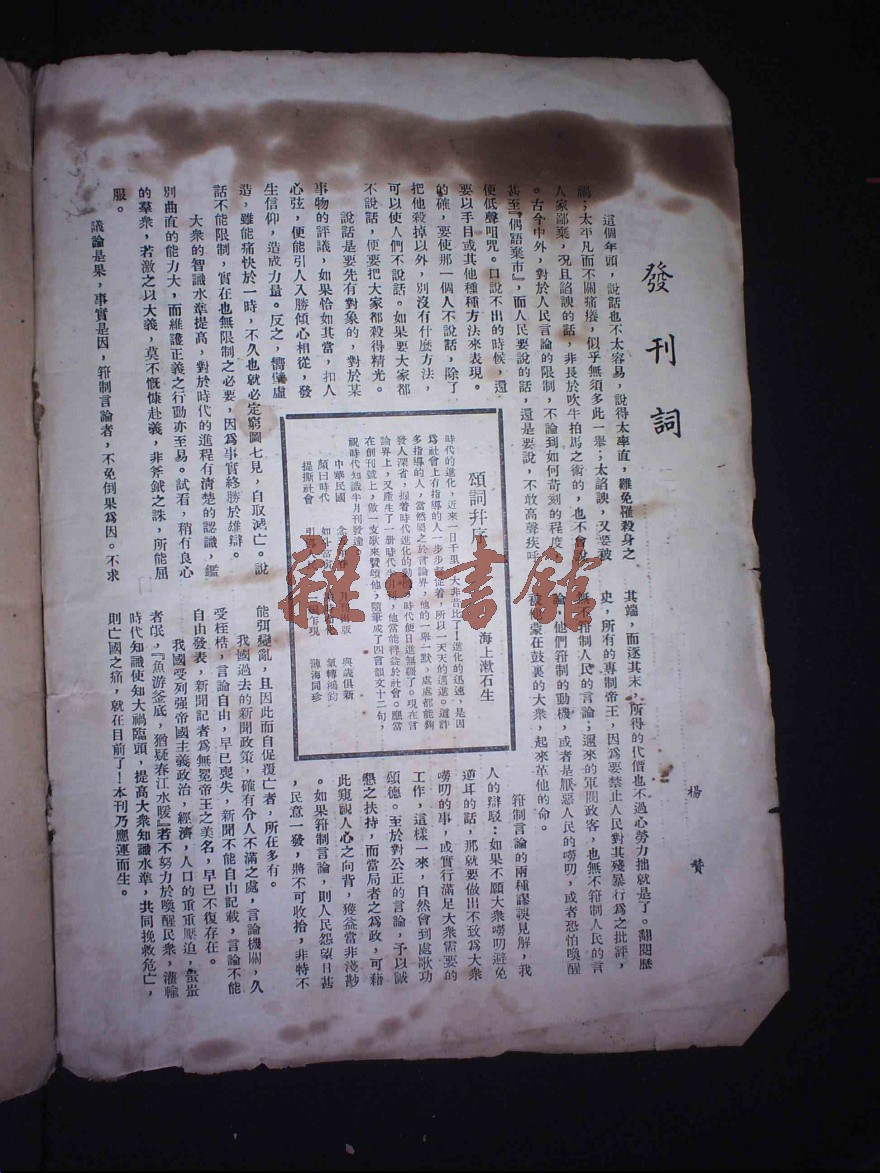 發刊詞
楊贊
這個年頭，說話也不太容易，說得太率直，難免罹殺身之
禍；太平凡而不關痛癢，似乎無須多此一舉；太諂諛，又要被
人家鄙棄，况且諂諛的話，非長於吹牛拍馬之術的，也不會說
。古今中外，對於人民言論的限制，不論到如何苛刻的程度，
甚至『偶語棄市』，而人民要說的話，還是要說，不敢高聲疾呼
便低聲咀咒。口說不出的時候，還
要以手目或其他種種方法來表現。
的確，要使那一個人不說話，除了
把他殺掉以外，別沒有什麼方法，
可以使人們不說話。如果要大家都
不說話，便要把大家都殺得精光。
說話是要先有對象的，對於某
事物的評議，如果恰如其當，扣人
心弦，便能引人入勝傾心相從，發
生信仰，造成力量。反之，嚮壁虛
造，雖能痛快於一時，不久也就必定窮圖七見，自取滅亡。說
話不能限制，實在也無限制之必要，因爲事實終勝於雄辯。
大衆的智識水準提高，對於時代的進程有清楚的認識，鑑
別曲直的能力大，而維護正義之行動亦至易。試看，稍有良心
的羣衆，若激之以大義，莫不慨慷赴義，非斧鉞之誅，所能屈
服。
議論是果，事實是因，箝制言論者，不免倒果爲因。不求
其端，而逐其末，所得的代價也不過心勞力拙就是了。翻閱歷
史，所有的專制帝王，因爲要禁止人民對其殘暴行爲之批評，
無不箝制人民的言論；邇來的軍閥政客，也無不箝制人民的言
論，他們箝制的動機，或者是厭惡人民的嘮叨，或者恐怕喚醒
被他蒙在鼓裏的大衆，起來革他的命。
箝制言論的兩種謬誤見解，我
人的辯駁：如果不願大衆嘮叨避免
逆耳的話，那就要做出不致爲大衆
嘮叨的事，或實行滿足大衆需要的
工作，這樣一來，自然會到處歌功
頌德。至於對公正的言論，予以誠
懇之扶持，而當局者之爲政，可藉
此窺視人心之向背，獲益當非淺尠
。如果箝制言論，則人民怨望日甚
，民意一發，將不可收拾，非特不
能弭變亂，且因此而自促覆亡者，所在多有。
我國過去的新聞政策，確有令人不滿之處，言論機關，久
受桎梏，言論自由，早已喪失，新聞不能自由記載，言論不能
自由發表，新聞記者爲無冕帝王之美名，早已不復存在。
我國受列强帝國主義政治，經濟，人口的重重壓迫，蚩蚩
者氓，『魚游釜底，猶疑春江水暖』若不努力於喚醒民衆，灌輸
時代知識使知大禍臨頭，提高大衆知識水準，共同挽救危亡，
則亡國之痛，就在目前了！本刊乃應運而生。
頌詞幷序
海上漱石生
時代的進化，近來一日千里，大非昔比了！進化的迅速，是因
爲社會上有指導的人一步步督促着，所以一天天的邁進。這許
多指導的人，當然屬之於言論界，他的一舉一默，處處都能夠
發人深省，握着時代進化的動，時代便日進無疆了。現在言
論界上，又產生了一册時代半月刊，他當能裨益於社會。應當
在創刊號上，做一支歌來贊頌他，隨筆成了四言韻文十二句，
視時代知識半月刊發達。
中華民國　月刊出版　與歲俱新
顏曰時代　氣轉鴻鈞
提撕社會　引　現　瀛海同珍
雜·書館